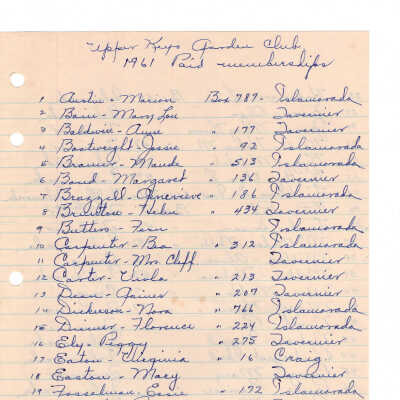 Upper Keys Garden Club
1961 Paid memberships
1 Austin - Marion Box 789 - Islamorada
2 Baine - Mary Lou Tavernier
3 Baldwin - Anne " 177 Tavernier
4 Boatwright - Jessie " 92 Islamorada
5 Bramer - Maude " 513 Islamorada
6 Baud - Margaret " 136 Tavernier
7 Brazzill - Genevieve " 186 Islamorada
8 - Helen " 434 Tavernier
9 Butters - Fern Islamorada
10 Carpenter - Bea " 312 Islamorada
11 Carpenter - Mrs. Cliff Tavernier
12 Carter - Viola " 213 Tavernier
13 Dean - " 207 Tavernier
14 Dickerson - Nora " 766 Islamorada
15 - Florence " 224 Islamorada
16 Ely - Peggy " 275 Tavernier
17 Eaton - Virginia " 16 Craig
18 Easton - Mary Tavernier
19 Fosselman - Essie " 172 Islamorada